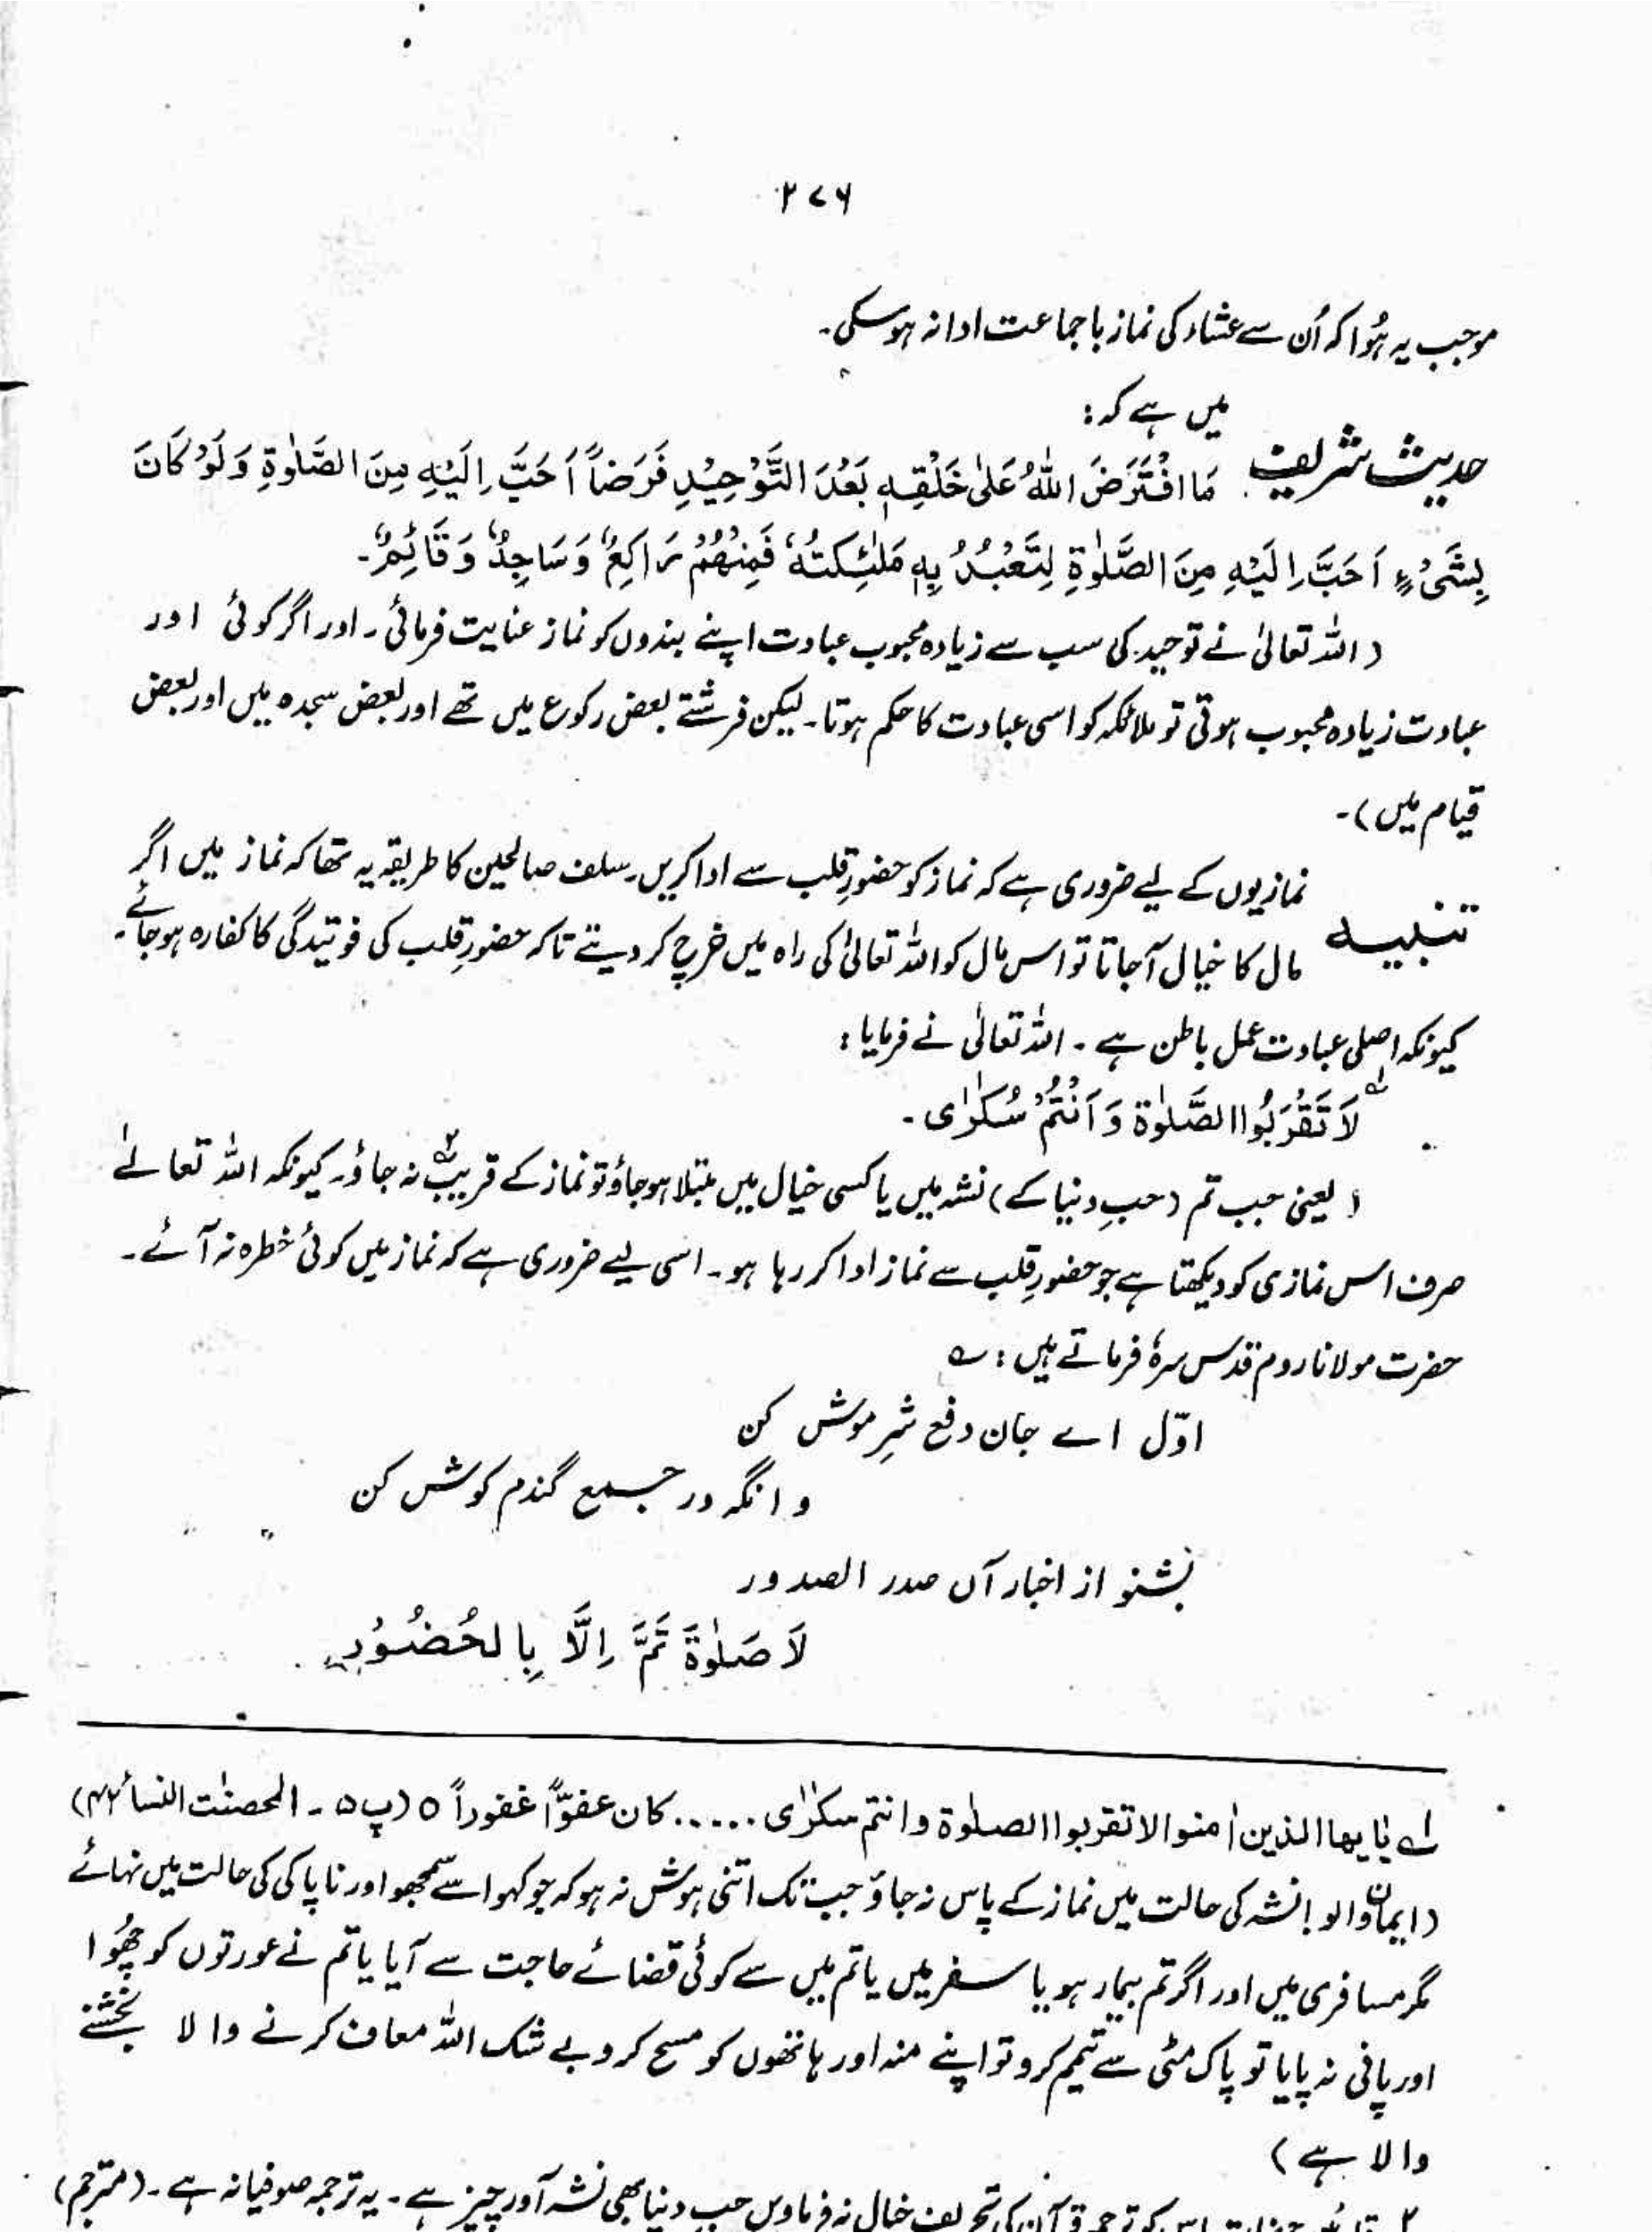 ۲۷۶
موجب یہ ہُوا کہ اُن سے عشاء کی نماز باجماعت ادا نہ ہو سکی۔
میں ہے کہ :
حدیث شریف مَا افْتَرَضَ اللّٰہُ عَلٰی خَلْقِہٖ بَعْدَ التَّوْحِیْدِ فَرَضاً اَحَبَّ اِلَیْہِ مِنَ الصَّلٰوۃِ وَلَوْ کَانَ
بِشَیْءٍ اَحَبَّ اِلَیْہِ مِنَ الصَّلٰوۃِ لِتَعْبُدُ بِہٖ مَلٰئِکَتُہٗ فَمِنْھُمْ رَاکِعٌ وَسَاجِدٌ وَقَائِمٌ۔
(اللہ تعالیٰ نے توحید کی سب سے زیادہ محبوب عبادت اپنے بندوں کو نماز عنایت فرمائی۔ اور اگر کوئی اور
عبادت زیادہ محبوب ہوتی تو ملائکہ کو اسی عبادت کا حکم ہوتا۔ لیکن فرشتے بعض رکوع میں تھے اور بعض سجدہ میں اور بعض
قیام میں)۔
نمازیوں کے لیے ضروری ہے کہ نماز کو حضورِ قلب سے ادا کریں۔ سلف صالحین کا طریقہ یہ تھا کہ نماز میں اگر
تنبیہ مال کا خیال آجاتا تو اس مال کو اللہ تعالیٰ کی راہ میں خرچ کر دیتے تاکہ حضورِ قلب کی فوتیدگی کا کفارہ ہو جائے۔
کیونکہ اصلی عبادت عمل باطن ہے۔ اللہ تعالیٰ نے فرمایا :
لَا تَقْرَبُوا الصَّلٰوۃَ وَاَنْتُمْ سُکٰرٰی۔ ؎۱
(یعنی جب تم (حبِ دنیا کے) نشہ میں یا کسی خیال میں مبتلا ہو جاؤ تو نماز کے قریب؎۲ نہ جاؤ۔ کیونکہ اللہ تعالےٰ
صرف اس نمازی کو دیکھتا ہے جو حضورِ قلب سے نماز ادا کر رہا ہو۔ اسی لیے ضروری ہے کہ نماز میں کوئی خطرہ نہ آئے۔
حضرت مولانا روم قدس سرہٗ فرماتے ہیں : ؎
اوّل اے جان دفع شرِ موش کن
وانگہ در جمع گندم کوشش کن
بشنو از اخبار آں صدر الصدور
لَا صَلٰوۃَ تَمَّ اِلَّا بِالْحُضُوْرِ
؎۱ یٰایھا الذین اٰمنوا لا تقربوا الصلٰوۃ وانتم سکرٰی ...... کان عفوًّا غفوراً ٥ (پ ۵ ۔ المحصنٰت النساء ۴۲)
(ایمان والو! نشہ کی حالت میں نماز کے پاس نہ جاؤ جب تک اتنی ہوش نہ ہو کہ جو کہو اسے سمجھو اور ناپاکی کی حالت میں نہائے
مگر مسافری میں اور اگر تم بیمار ہو یا سفر میں یا تم میں سے کوئی قضائے حاجت سے آیا یا تم نے عورتوں کو چھُوا
اور پانی نہ پایا تو پاک مٹی سے تیمم کرو تو اپنے منہ اور ہاتھوں کو مسح کرو بے شک اللہ معاف کرنے والا بخشنے
والا ہے)
۲ اس کو ترجمہ قرآن کی تحریف خیال نہ فرماویں حب دنیا بھی نشہ آور چیز ہے۔ یہ ترجمہ صوفیانہ ہے۔ (مترجم)